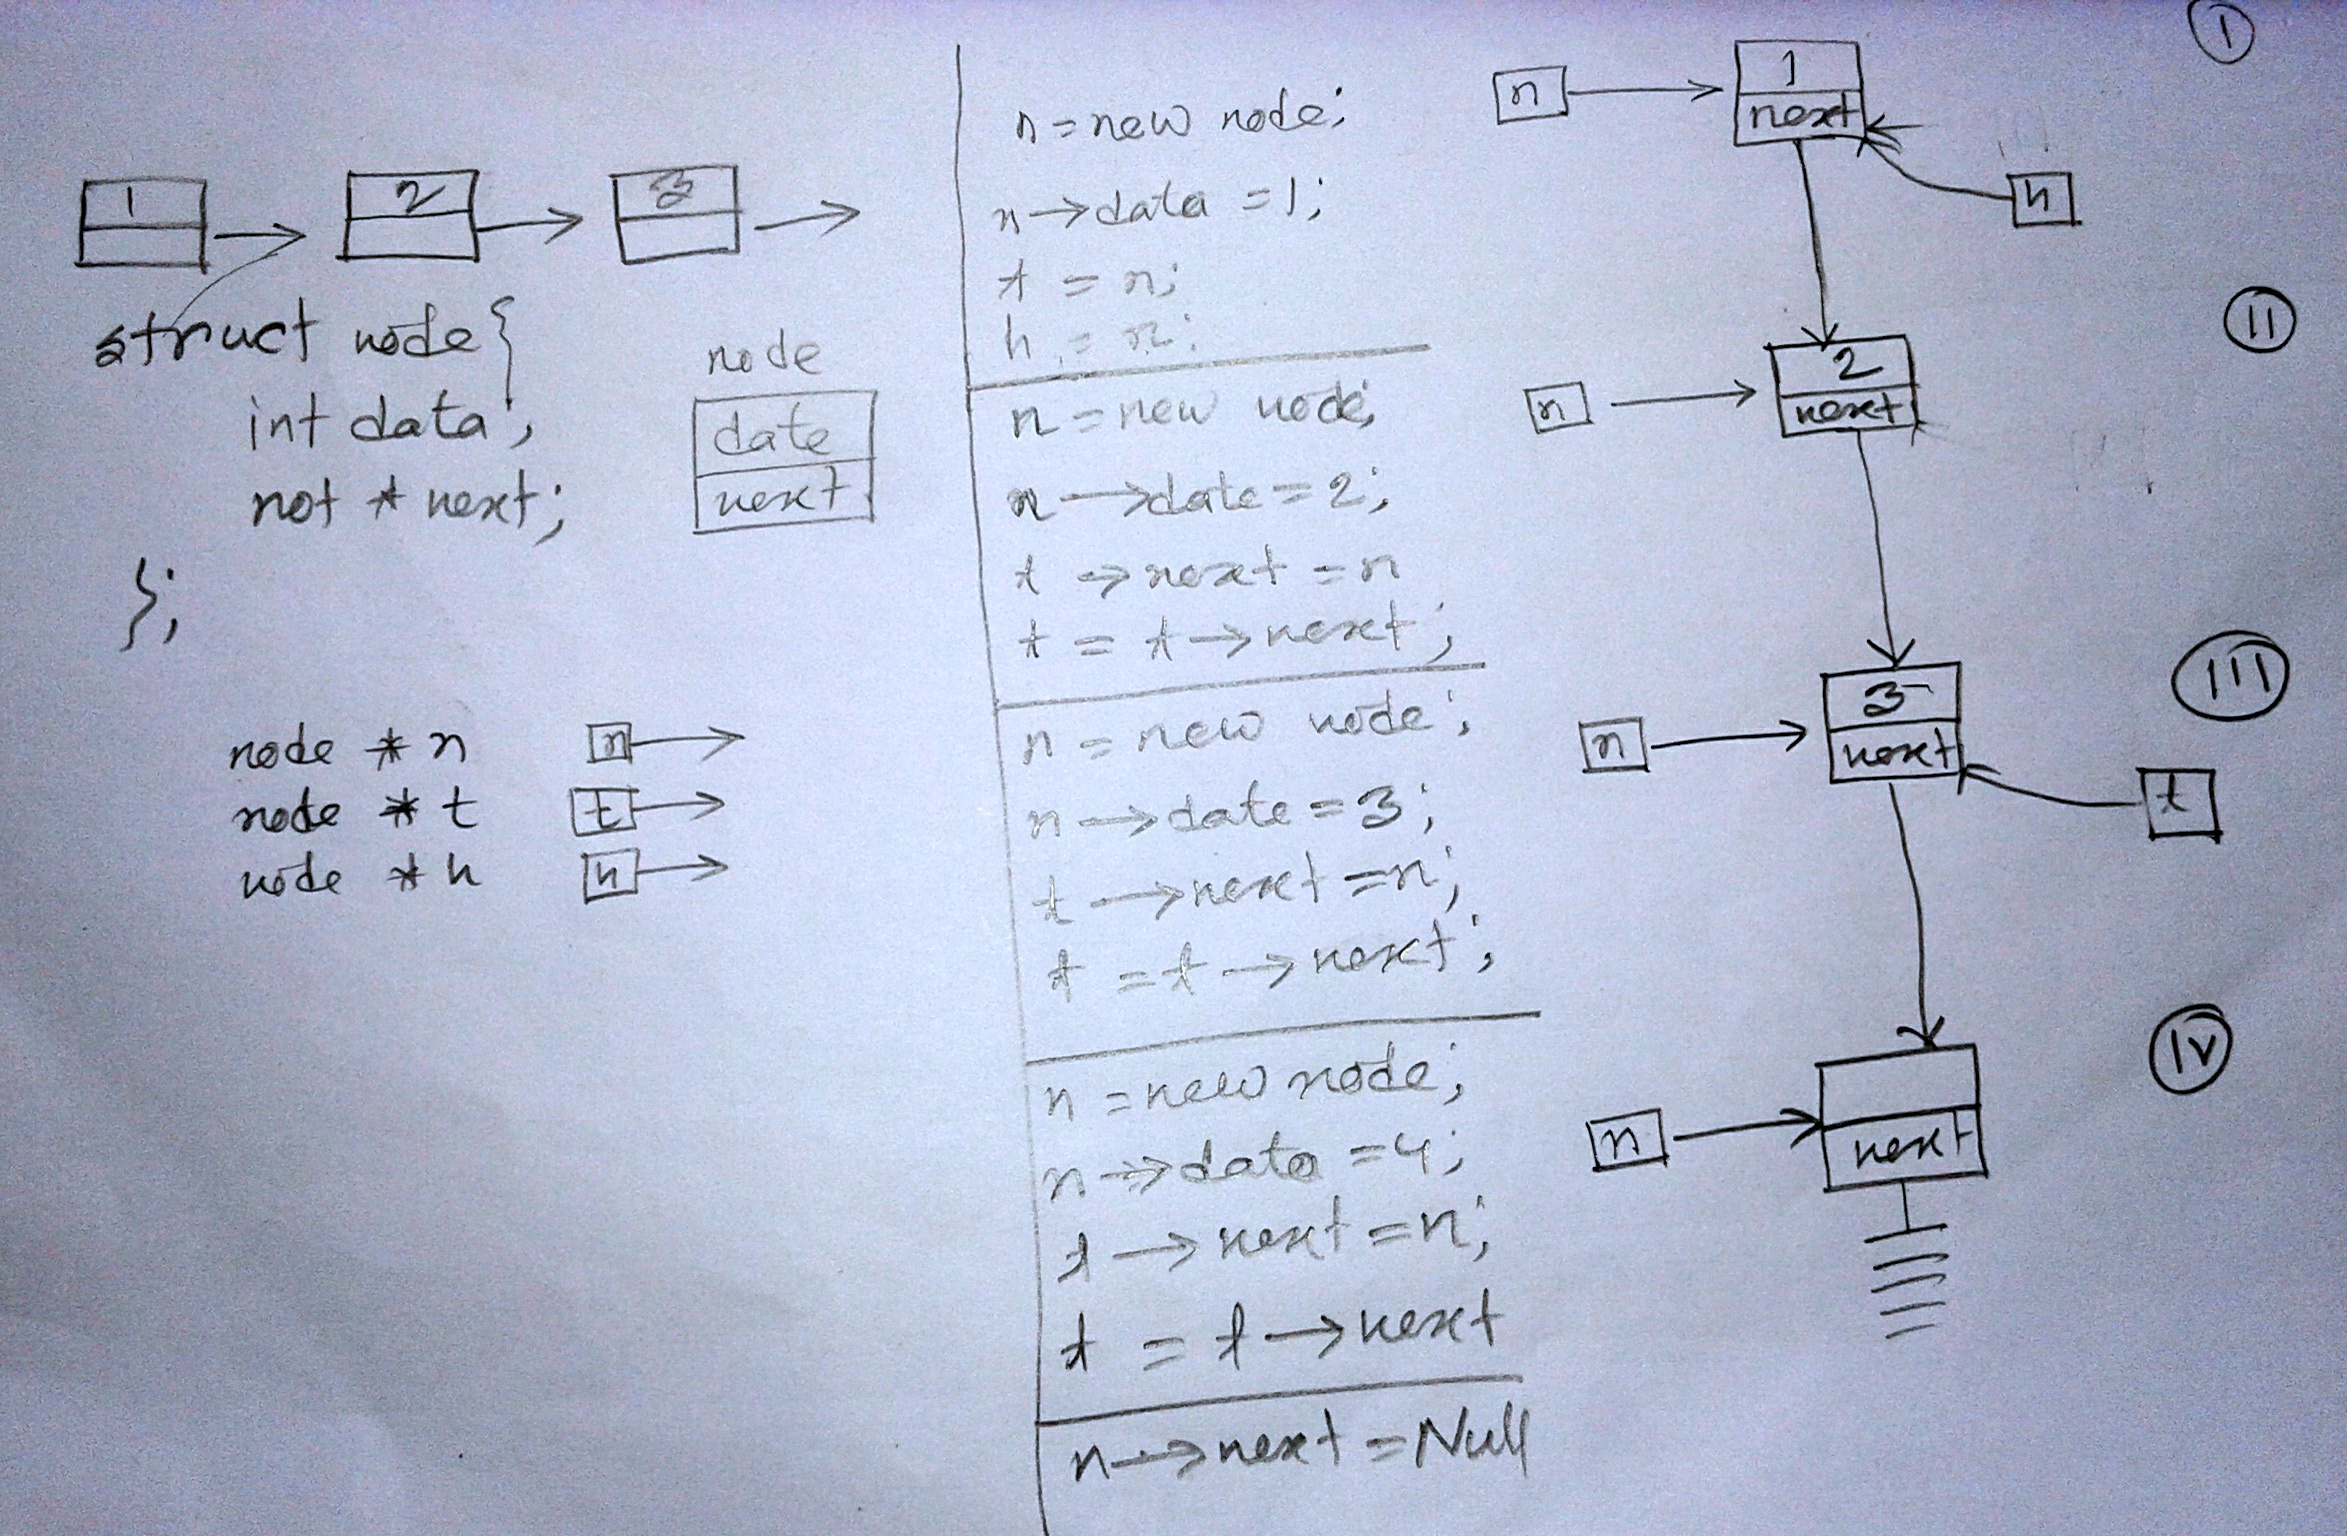 1 → 2 → 3 →
struct node {
int data;
not * next;
};
node
date
next
node * n n →
node * t t →
node * h h →
n = new node;
n → data = 1;
t = n;
h = n;
n = new node;
n → date = 2;
t → next = n
t = t → next;
n = new node;
n → date = 3;
t → next = n;
t = t → next;
n = new node;
n → data = 4;
t → next = n;
t = t → next
n → next = Null
I
n → 1
next
h
II
n → 2
next
III
n → 3
next
t
IV
n →
next